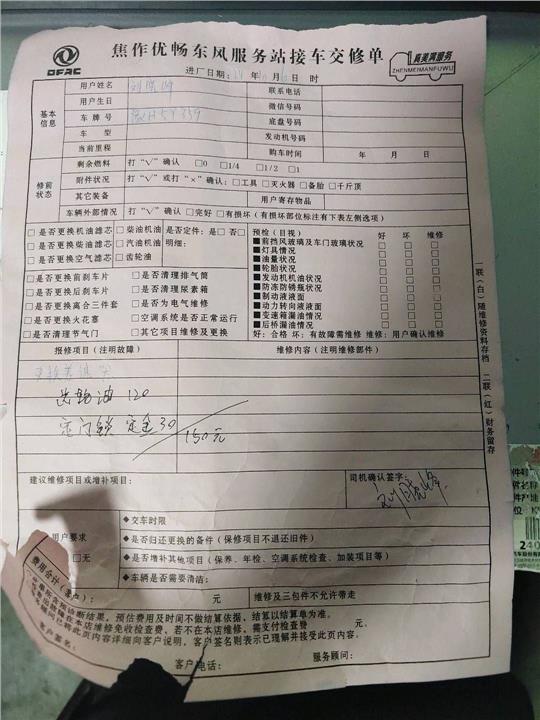 DFAC
焦作优畅东风服务站接车交修单
真美满服务
ZHENMEIMANFUWU
进厂日期: 年 月 日 时
基本信息
用户姓名 联系电话
用户生日 微信号码
车牌号 底盘号码
车型 发动机号码
当前里程 购车时间 年 月 日
修前状态
剩余燃料 打“√”确认 □0 □1/4 □1/2 □1
附件状况 打“√”或打“×”确认:□工具 □灭火器 □备胎 □千斤顶
其它装备 用户寄存物品
车辆外部情况 打“√”确认 □完好 □有损坏(有损坏部位标注有下表左侧选项)
□是否更换机油滤芯 □柴油机油 是否定件:□是 □否
□是否更换柴油滤芯 □汽油机油 明细:
□是否更换空气滤芯 □齿轮油
□是否更换前刹车片 □是否清理排气筒
□是否更换后刹车片 □是否清理尿素箱
□是否更换离合三件套 □是否为电气维修
□是否更换火花塞 □空调系统是否正常运行
□是否清理节气门 □其它项目维修及更换
预检(目视) 好 坏 维修
■前挡风玻璃及车门玻璃状况 □ □ □
■灯具情况 □ □ □
■油量状况 □ □ □
■轮胎状况 □ □ □
■发动机机油状况 □ □ □
■防冻防锈瓶状况 □ □ □
■制动液液面 □ □ □
■动力转向液液面 □ □ □
■变速箱漏油情况 □ □ □
■后桥漏油情况 □ □ □
好:合格 坏:有故障需维修 维修:用户确认维修
报修项目(注明故障) 维修内容(注明维修部件)
齿轮油 120
定门锁 定金30
150元
建议维修项目或增补项目:
司机确认签字:
刘晓峰
用户要求
□无
◆交车时限
◆是否归还更换的备件(保修项目不退还旧件)
◆是否增补其他项目(保养、年检、空调系统检查、加装项目等)
◆车辆是否需要清洁:
费用合计(客户): 元 维修及三包件不允许带走
诊断结果,预估费用及时间不做结算依据,结算以结算单为准。
在本店维修免收检查费,若不在本店维修,需支付检查费 元。
此页内容详细向客户说明,客户签名则表示已理解并接受此页内容。
客户签名:
客户电话: 服务顾问:
一联(白)随维修资料存档 二联(红)财务留存